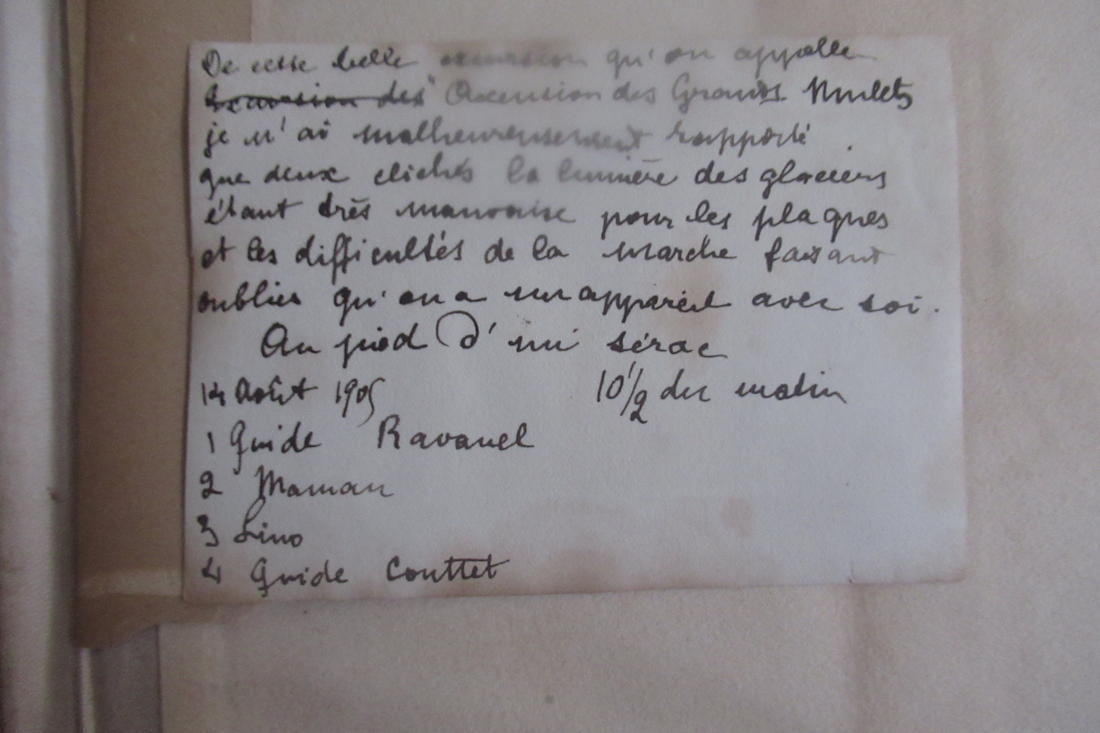 De cette belle excursion qu'on appelle
Excursion des" Ascension des Grands Mulets
je n'ai malheureusement rapporté
que deux clichés la lumière des glaciers
étant très mauvaise pour les plaques
et les difficultés de la marche faisant
oublier qu'on a un appareil avec soi.
Au pied d'un sérac
14 Août 1905 10 1/2 du matin
1 Guide Ravanel
2 Maman
3 Lino
4 Guide Couttet